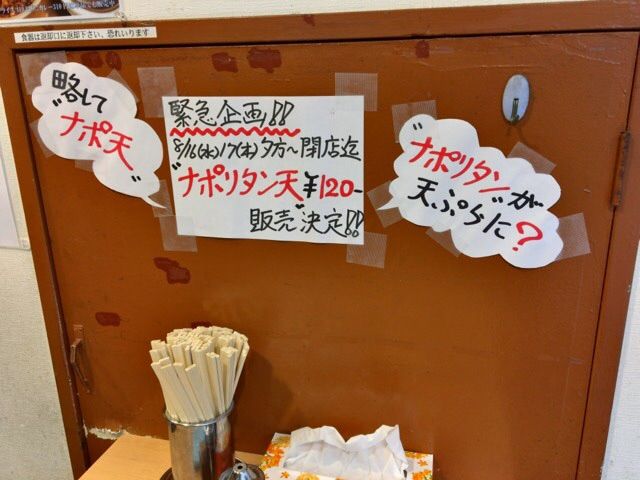 食器は返却口に返却下さい、恐れいります
"略して
ナポ天"
緊急企画!!
8/16(水)17(木)夕方〜閉店迄
"ナポリタン天"¥120-
販売決定!!
"ナポリタン"が
天ぷらに?